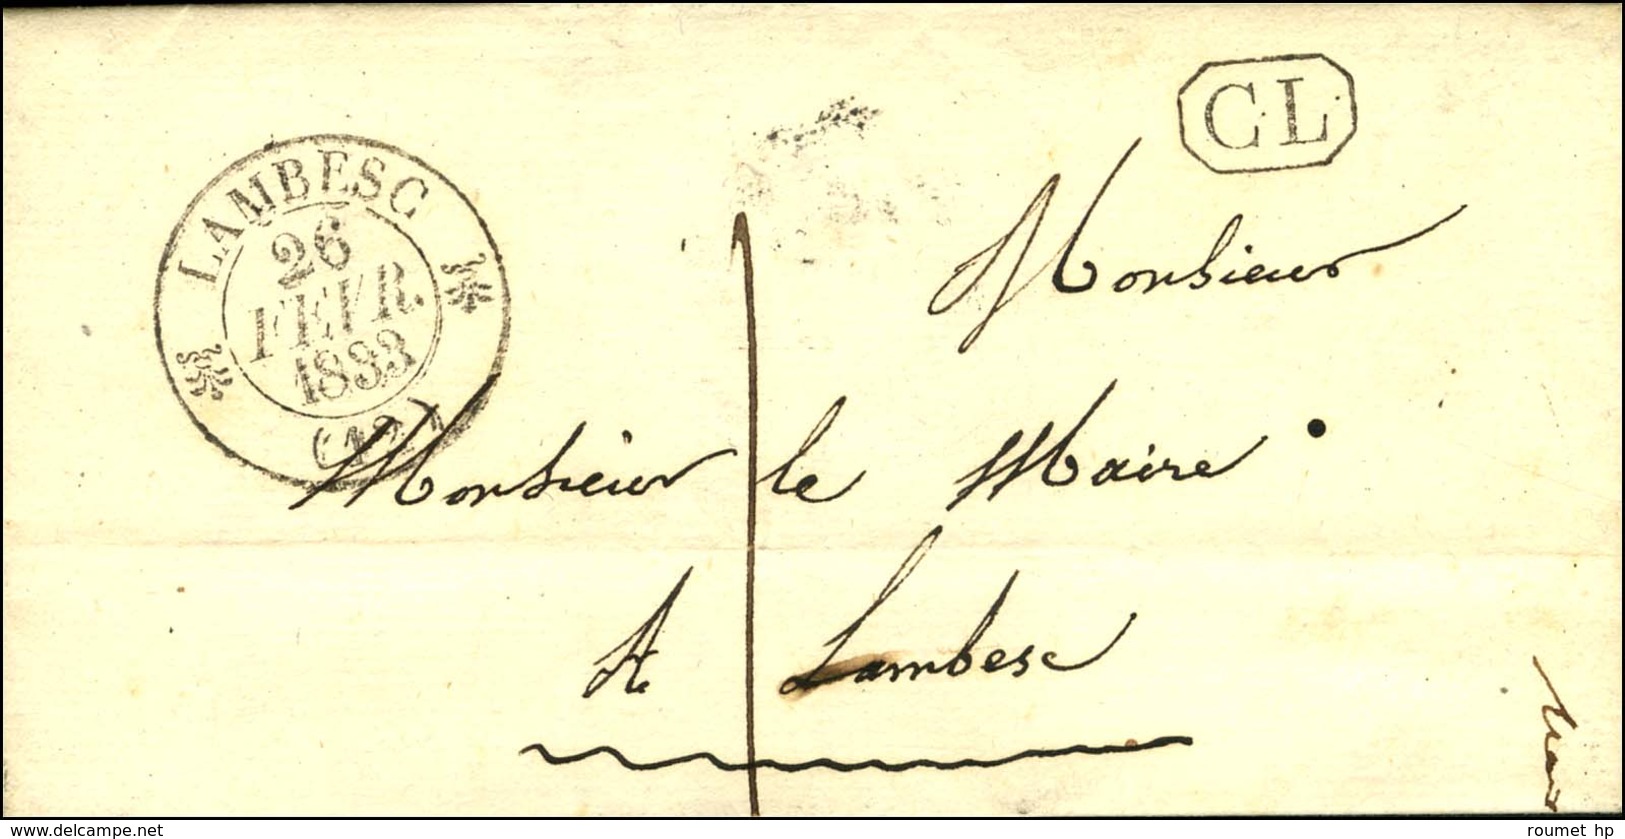 CL
LAMBESC
26
FEVR.
1833
(12)
Monsieur
Monsieur le Maire
A Lambesc
1
www.delcampe.net
roumet hp